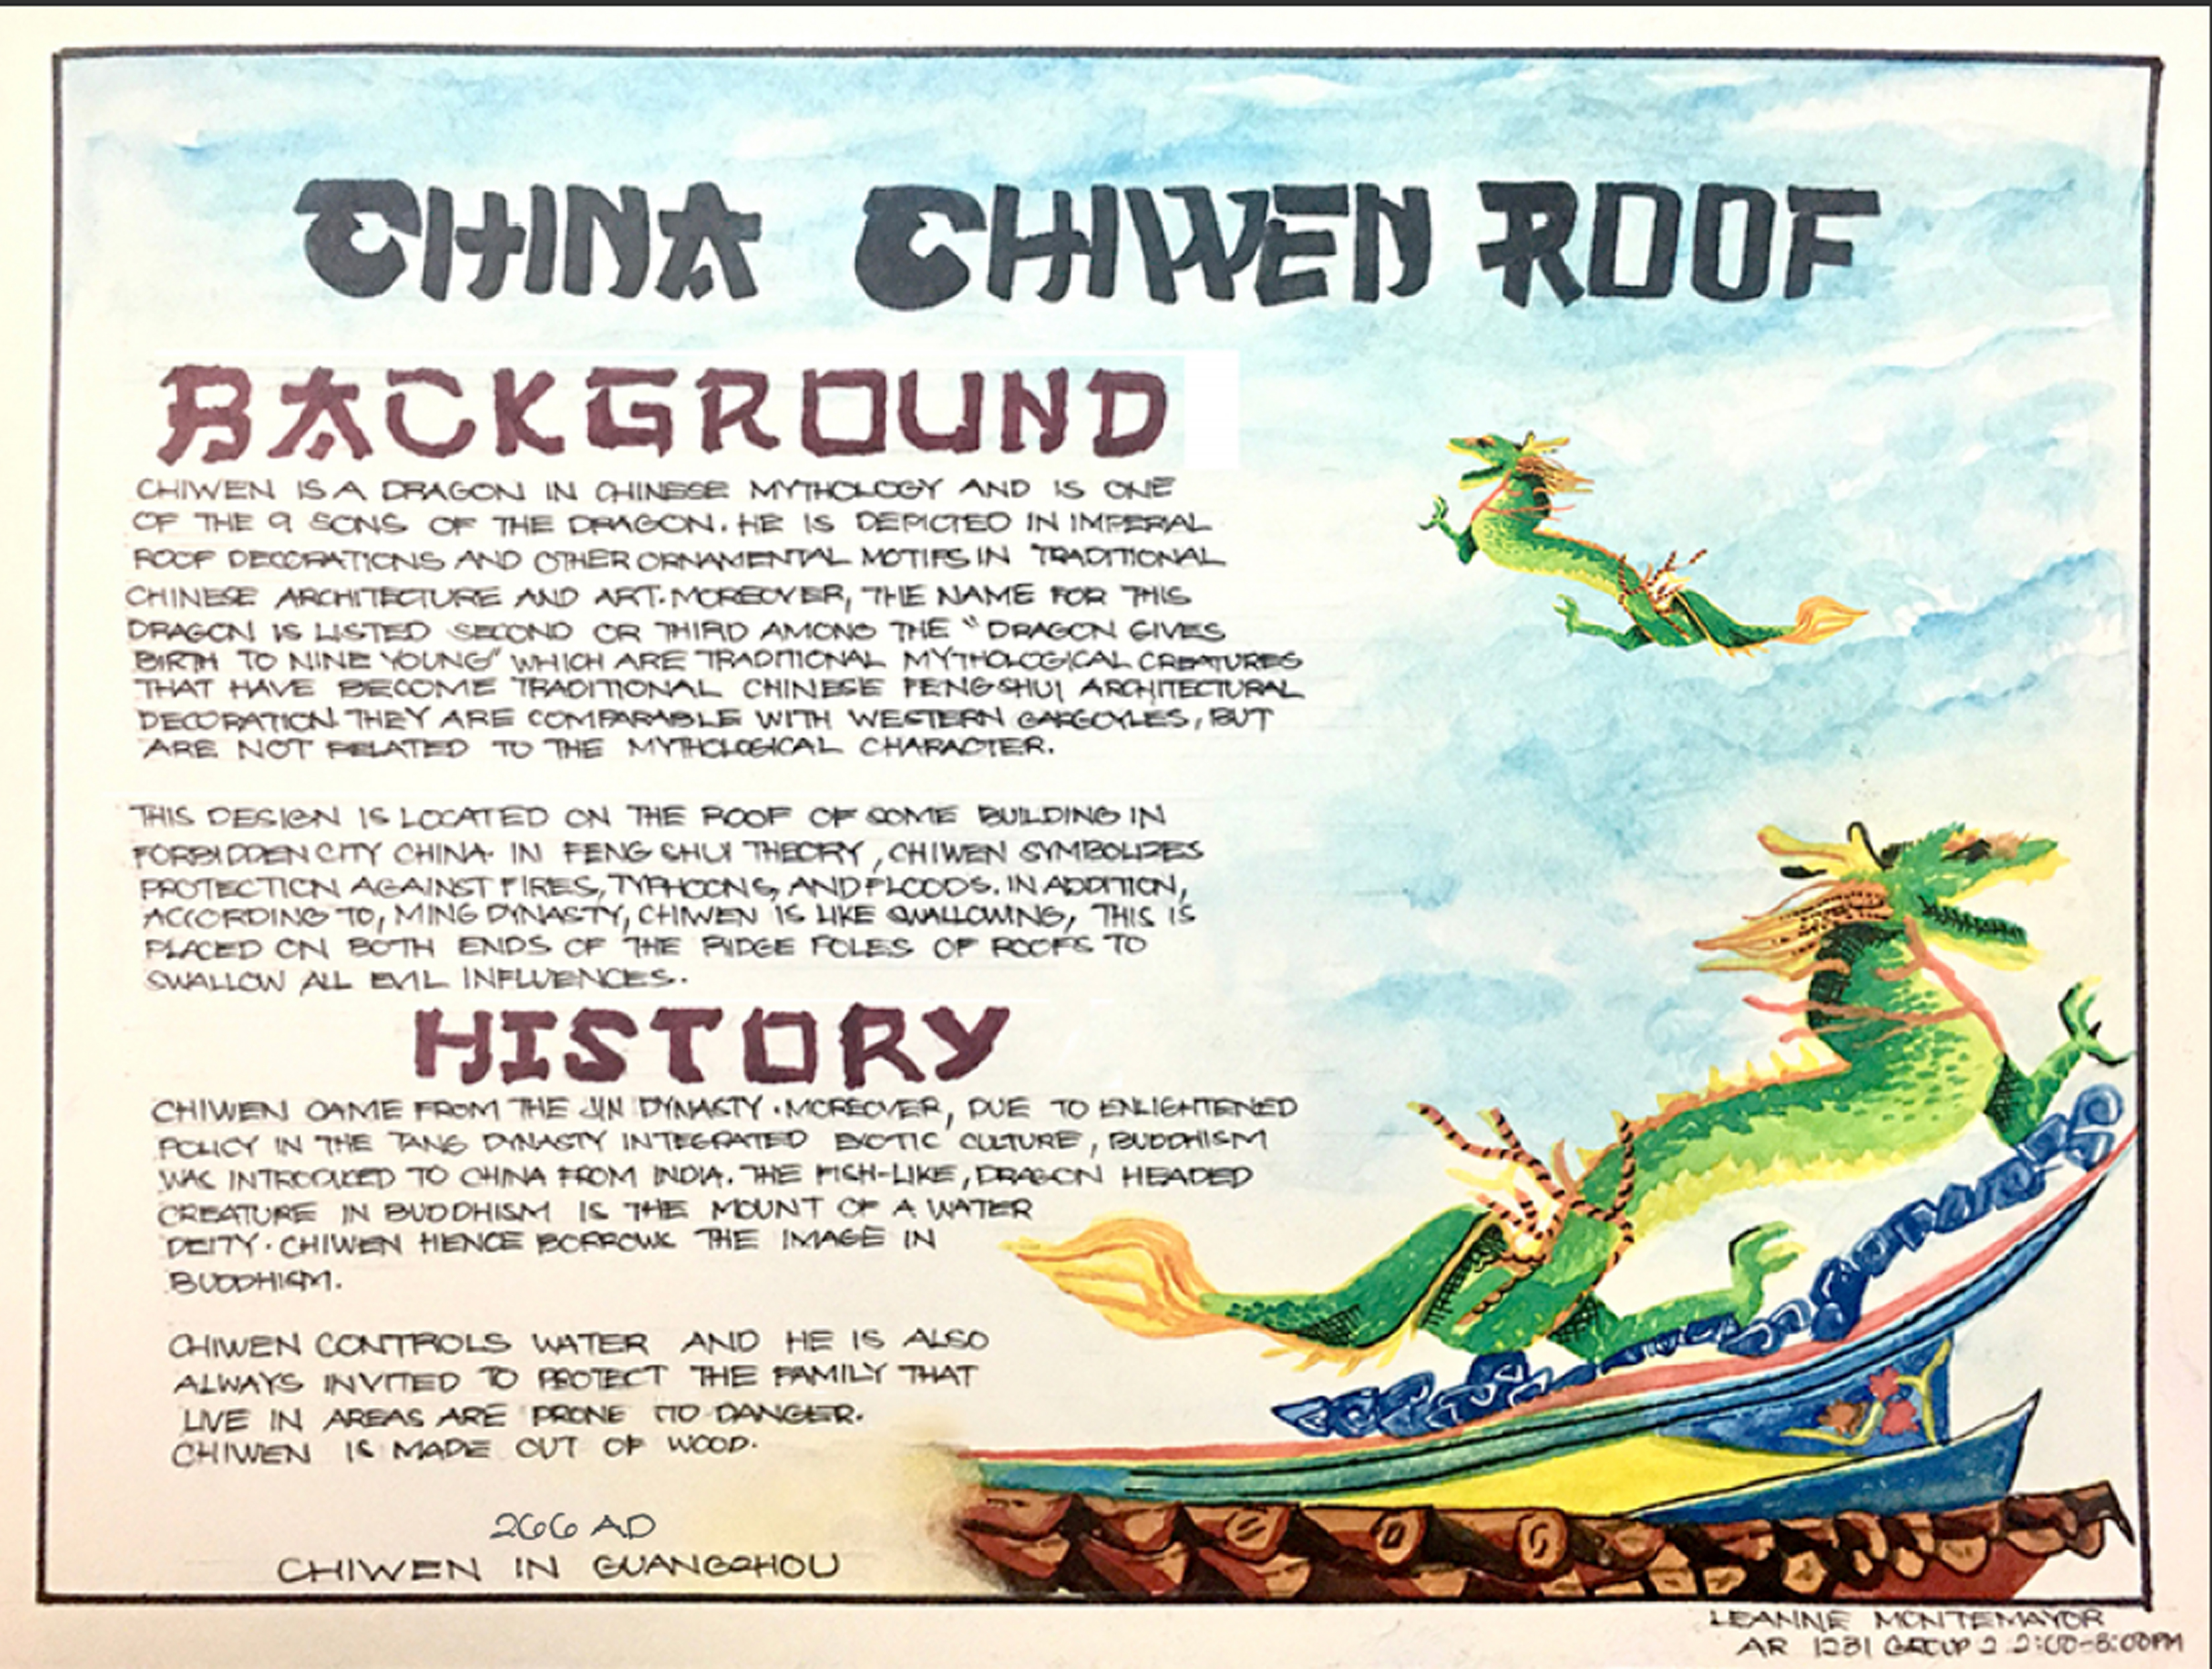 CHINA CHIWEN ROOF
BACKGROUND
CHIWEN IS A DRAGON IN CHINESE MYTHOLOGY AND IS ONE
OF THE 9 SONS OF THE DRAGON. HE IS DEPICTED IN IMPERIAL
ROOF DECORATIONS AND OTHER ORNAMENTAL MOTIFS IN TRADITIONAL
CHINESE ARCHITECTURE AND ART. MOREOVER, THE NAME FOR THIS
DRAGON IS LISTED SECOND OR THIRD AMONG THE "DRAGON GIVES
BIRTH TO NINE YOUNG" WHICH ARE TRADITIONAL MYTHOLOGICAL CREATURES
THAT HAVE BECOME TRADITIONAL CHINESE FENGSHUI ARCHITECTURAL
DECORATION. THEY ARE COMPARABLE WITH WESTERN GARGOYLES, BUT
ARE NOT RELATED TO THE MYTHOLOGICAL CHARACTER.
THIS DESIGN IS LOCATED ON THE ROOF OF SOME BUILDING IN
FORBIDDEN CITY CHINA. IN FENG SHUI THEORY, CHIWEN SYMBOLIZES
PROTECTION AGAINST FIRES, TYPHOONS, AND FLOODS. IN ADDITION,
ACCORDING TO, MING DYNASTY, CHIWEN IS LIKE SWALLOWING, THIS IS
PLACED ON BOTH ENDS OF THE RIDGE POLES OF ROOFS TO
SWALLOW ALL EVIL INFLUENCES.
HISTORY
CHIWEN CAME FROM THE JIN DYNASTY. MOREOVER, DUE TO ENLIGHTENED
POLICY IN THE TANG DYNASTY INTEGRATED EXOTIC CULTURE, BUDDHISM
WAS INTRODUCED TO CHINA FROM INDIA. THE FISH-LIKE, DRAGON HEADED
CREATURE IN BUDDHISM IS THE MOUNT OF A WATER
DEITY. CHIWEN HENCE BORROWS THE IMAGE IN
BUDDHISM.
CHIWEN CONTROLS WATER AND HE IS ALSO
ALWAYS INVITED TO PROTECT THE FAMILY THAT
LIVE IN AREAS ARE PRONE TO DANGER.
CHIWEN IS MADE OUT OF WOOD.
266 AD
CHIWEN IN GUANGZHOU
LEANNE MONTEMAYOR
AR 1231 GROUP 2 2:00-5:00PM